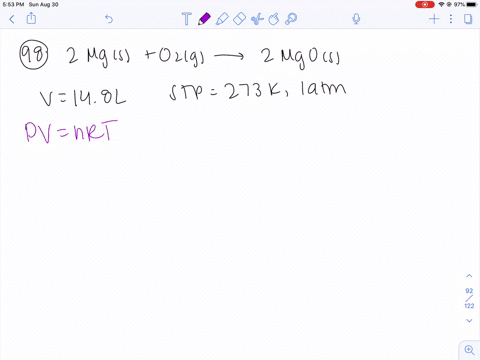 5:53 PM Sun Aug 30
97%
98 2 Mg(s) + O2(g) → 2 MgO(s)
V = 14.8L STP = 273 K, 1 atm
PV = nRT
92
122